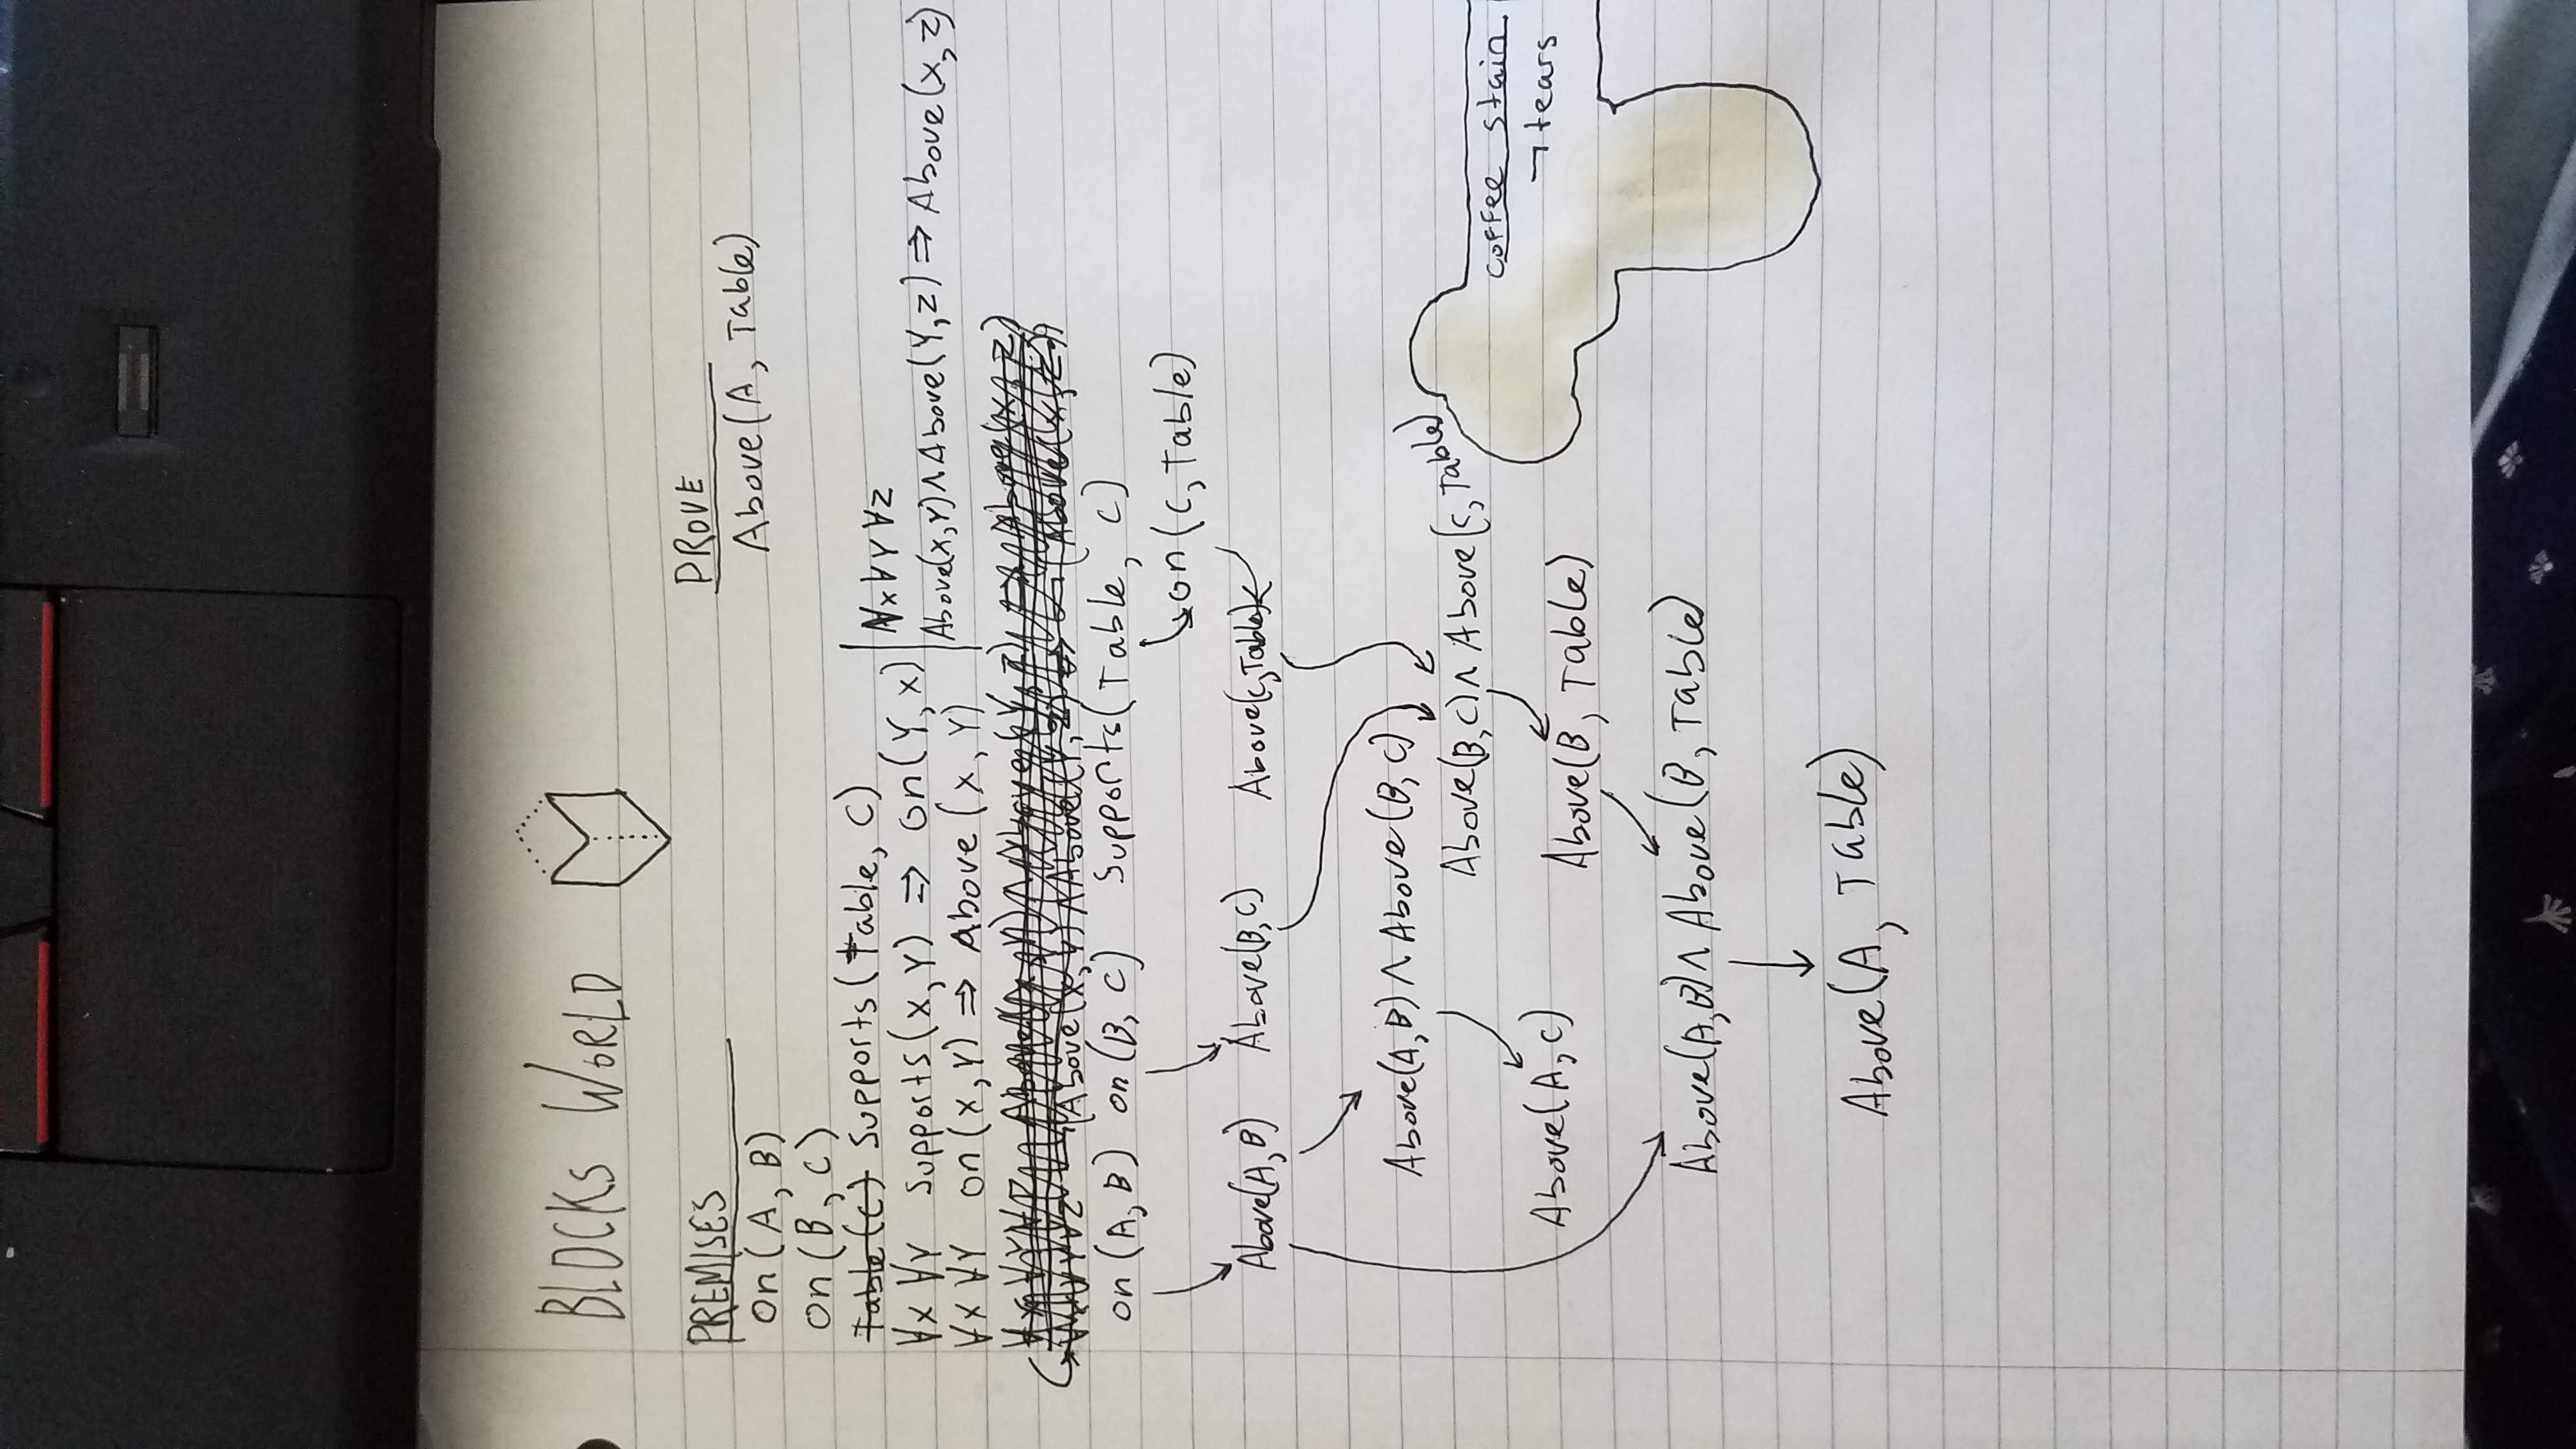 BLOCKS WORLD
PREMISES
PROVE
on(A, B)
Above(A, Table)
on(B, C)
Table(C) Supports(Table, C)
∀x ∀y Supports(x, y) ⇒ on(y, x)
∀x ∀y on(x, y) ⇒ Above(x, y)
∀x∀y∀z
Above(x,y)∧Above(y,z) ⇒ Above(x,z)
∀x∀y∀z (Above(x,y)∧Above(y,z) ⇒ (Above(x,z))
on(A, B) on(B, C) Supports(Table, C)
on(C, Table)
Above(A,B) Above(B,C) Above(C,Table)
Above(A,B)∧Above(B,C)
Above(B,C)∧Above(C,Table)
Above(A,C)
Above(B, Table)
Above(A,B)∧Above(B,Table)
Above(A, Table)
coffee stain
¬tears